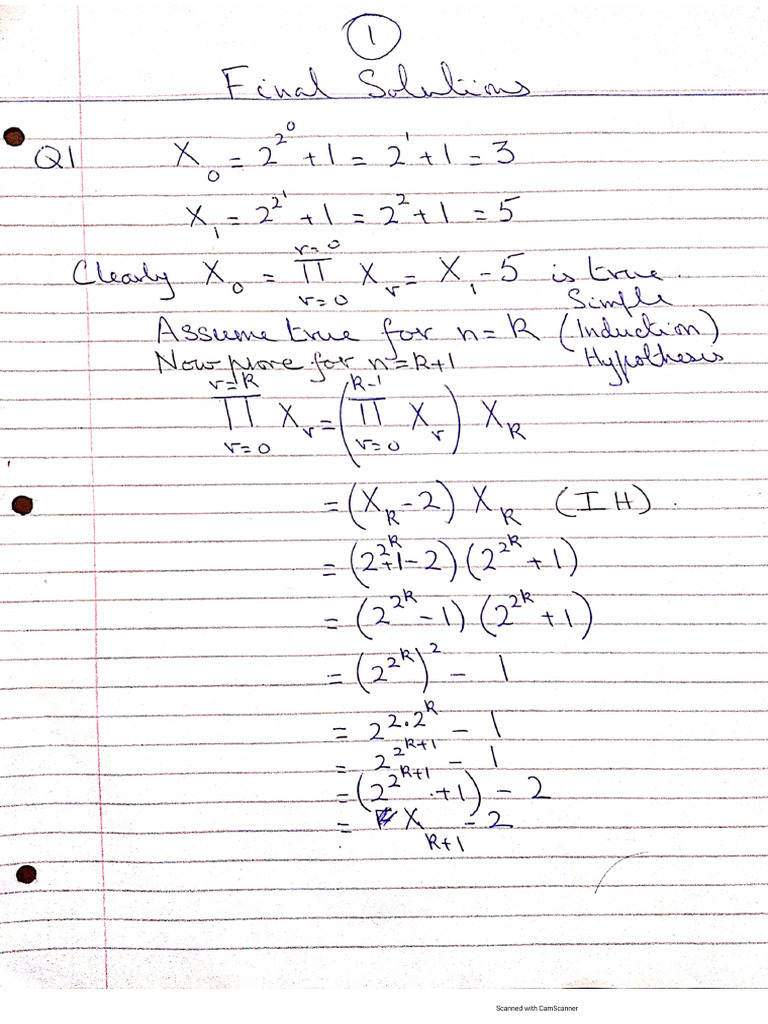 1
Final Solutions
Q1 X₀ = 2^(2^0) + 1 = 2^1 + 1 = 3
X₁ = 2^(2^1) + 1 = 2^2 + 1 = 5
Clearly X₀ = ∏_(r=0)^(r=0) X_r = X₁ - 5 is true.
Assume true for n = k (Simple Induction Hypothesis)
Now prove for n = k+1
∏_(r=0)^(r=k) X_r = (∏_(r=0)^(k-1) X_r) X_k
= (X_k - 2) X_k (IH).
= (2^(2^k) + 1 - 2) (2^(2^k) + 1)
= (2^(2^k) - 1) (2^(2^k) + 1)
= (2^(2^k))^2 - 1
= 2^(2·2^k) - 1
= 2^(2^(k+1)) - 1
= (2^(2^(k+1)) + 1) - 2
= X_(k+1) - 2
Scanned with CamScanner